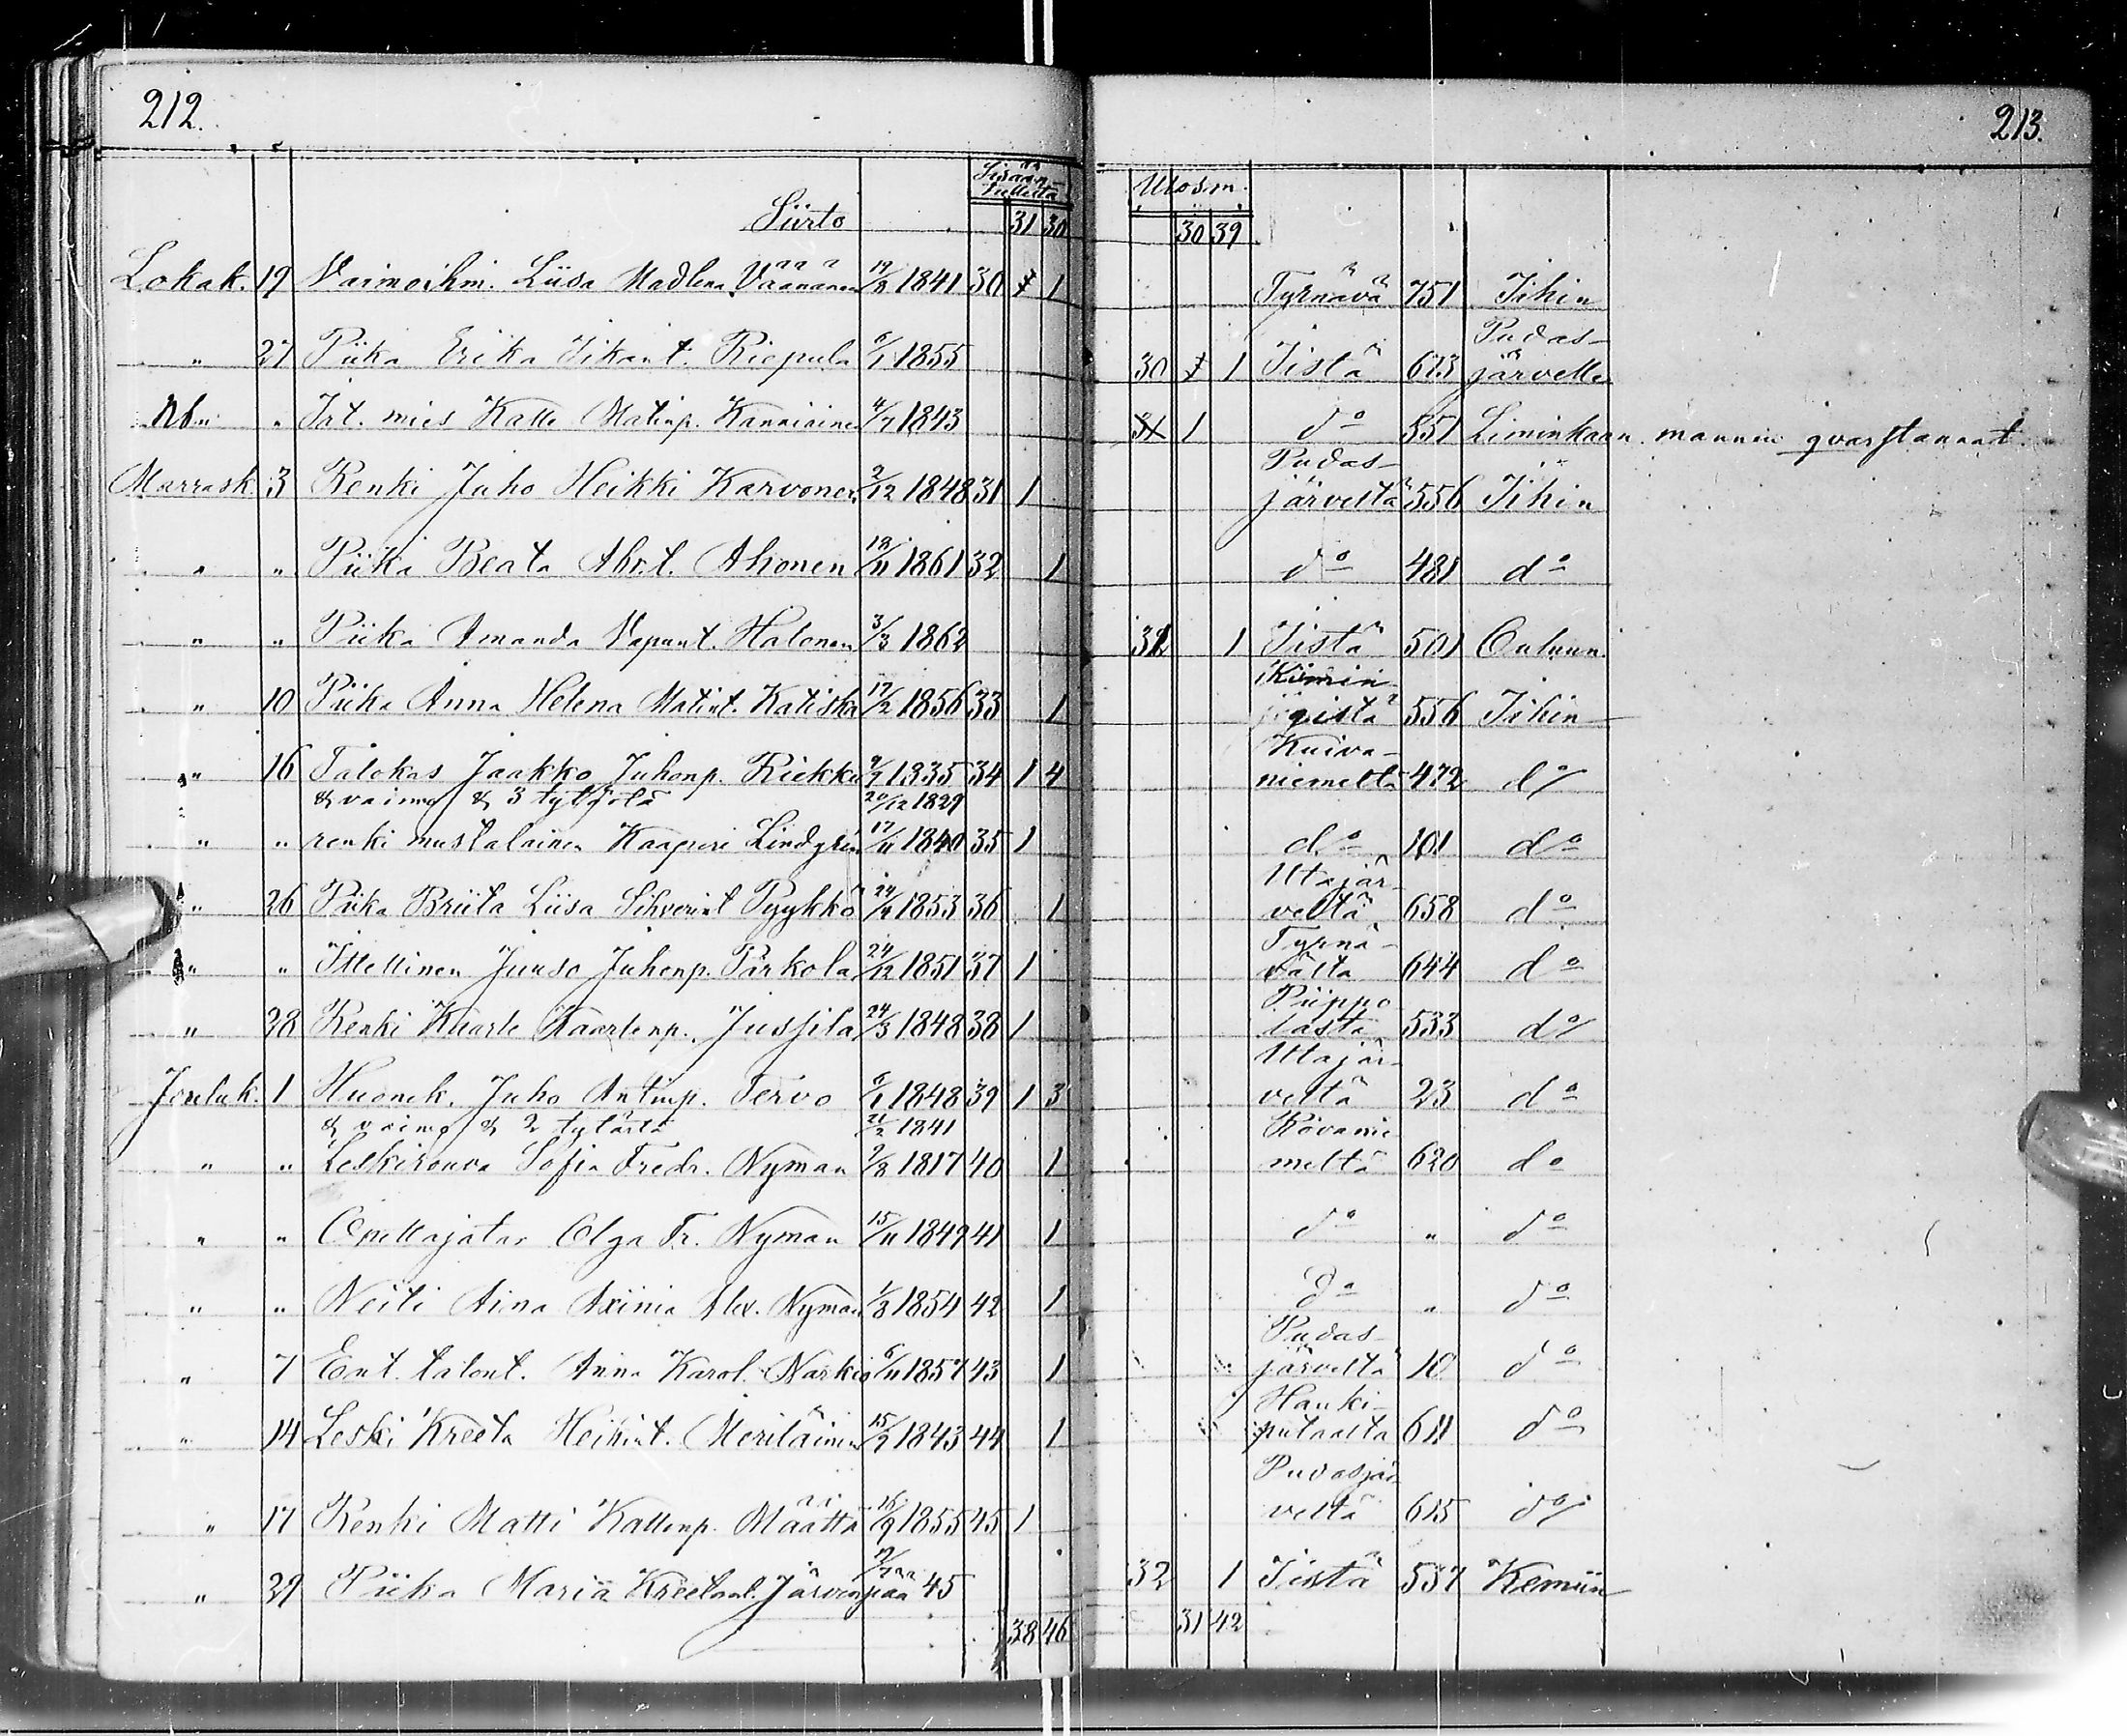 212.
213.
Sisään
tulleita
Ulosm.
Siirto 31 30
30 39
Lokak. 19 Vaimoihm. Liisa Madlena Väänänen 1841 30 1 Tyrnävä 751 Iihin
" 27 Piika Erika Iikant. Riepula 6/1 1855 30 1 Iistä 623 Pudas-
järvelle
" Irt. mies Kalle Matinp. 4/7 1843 31 1 do 551 Liminkaan
Marrask. 3 Renki Juho Heikki Karvonen 2/12 1848 31 1 Pudas-
järveltä 556 Iihin
" " Piika Beata Abr.t. Ahonen 18/11 1861 32 1 do 481 do
" " Piika Amanda Vapunt. Halonen 3/3 1862 32 1 Iistä 501 Ouluun.
" 10 Piika Anna Helena Matint. Katiska 17/2 1856 33 1 Kiimin-
gistä 556 Iihin
" 16 Talokas Jaakko Juhonp. Riekki 1835 34 1 4 Kuiva-
niemeltä 472 do
& vaimo & 3 tytärtä 20/12 1829
" " renki mustalainen Kaaperi Lindgren 17/11 1840 35 1 do 101 do
" 26 Piika Briita Liisa Pyykkö 1853 36 1 Utajär-
veltä 658 do
" " Itsellinen Juuso Juhonp. Parkola 24/12 1851 37 1 Tyrnä-
vältä 644 do
" 28 Renki Kaarle Kaarlenp. Jussila 24/3 1848 38 1 Piippo-
lasta 533 do
Jouluk. 1 Huonek. Juho Antinp. Tervo 1848 39 1 3 Utajär-
veltä 23 do
& vaimo & 2 tytärtä 21/2 1841
" " Leskirouva Sofia Fredr. Nyman 1817 40 1 Rovanie-
meltä 620 do
" " Opettajatar Olga Fr. Nyman 15/11 1849 41 1 do " do
" " Neiti Aina Axinia Alex. Nyman 1/8 1854 42 1 do " do
" 7 Ent. talont. Anna Karol. Narkio 6/11 1857 43 1 Pudas-
järveltä 10 do
" 14 Leski Kreeta Heikint. Meriläinen 15/7 1843 44 1 Hauki-
putaalta 611 do
" 17 Renki Matti Kallenp. Määttä 16/9 1855 45 1 Pudasjär-
veltä 615 do
" 29 Piika Maria Kreetant. Järvenpää 45 32 1 Iistä 537 Kemiin
38 46
31 42